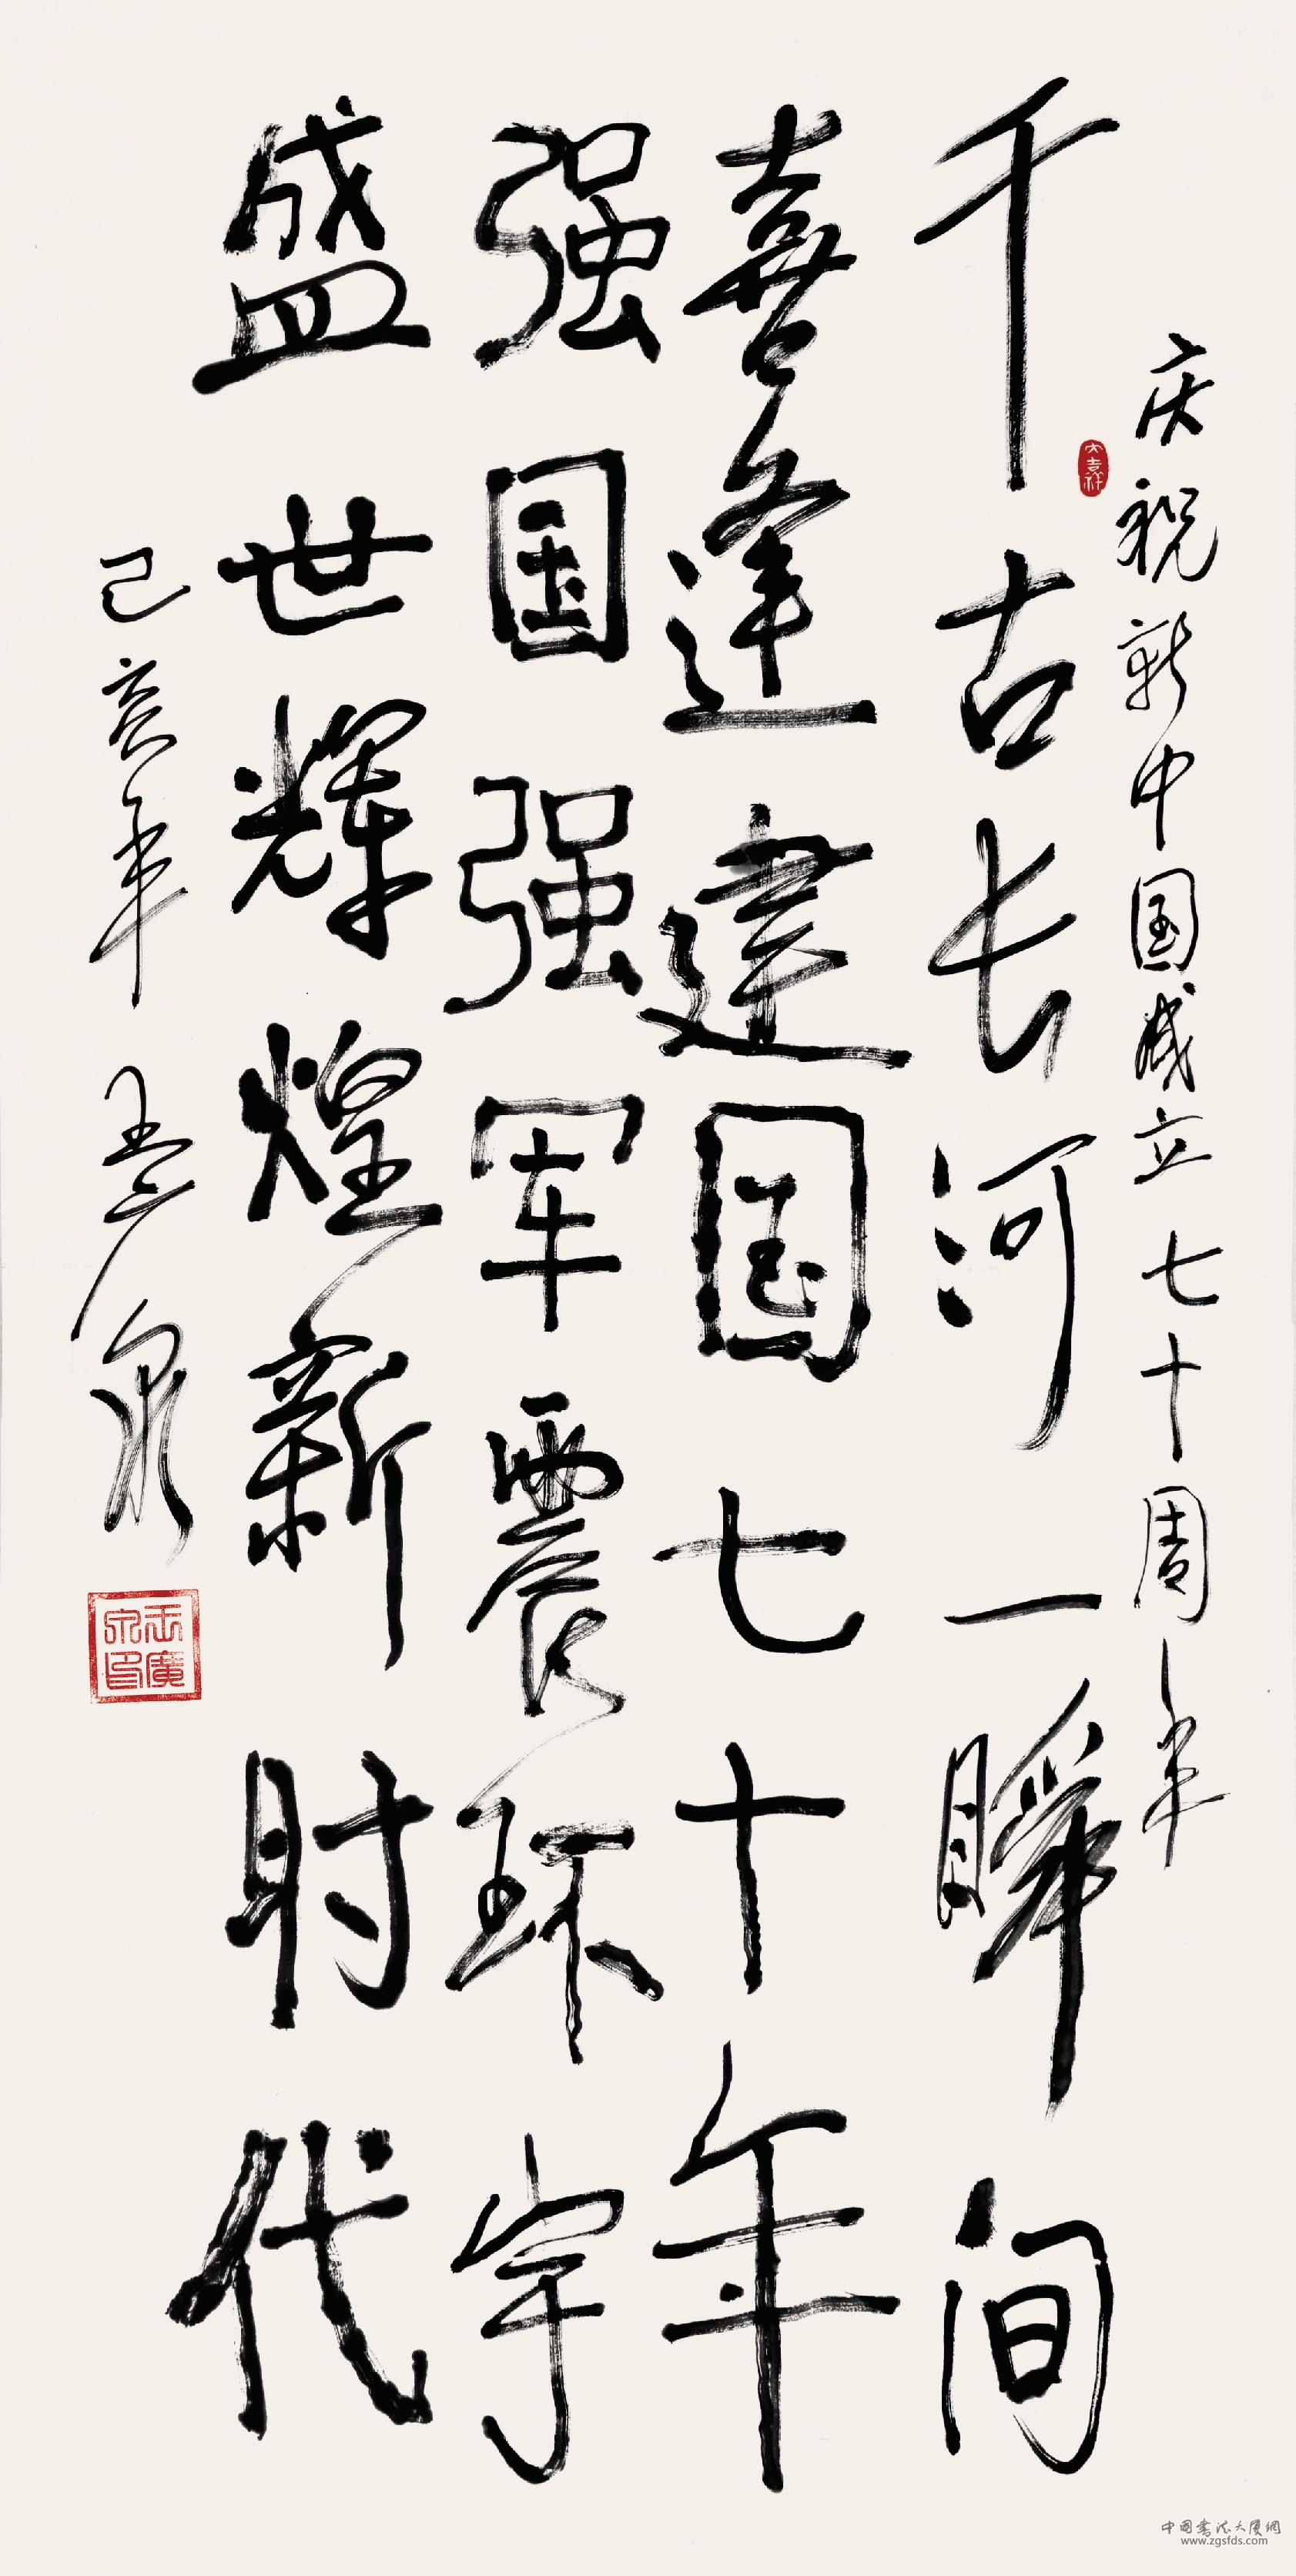 庆祝新中国成立七十周年
大吉祥
千古长河一瞬间
喜逢建国七十年
强国强军震环宇
盛世輝煌新时代
己亥年 王广泉
王廣泉印
中国书法大厦網
www.zgsfds.com